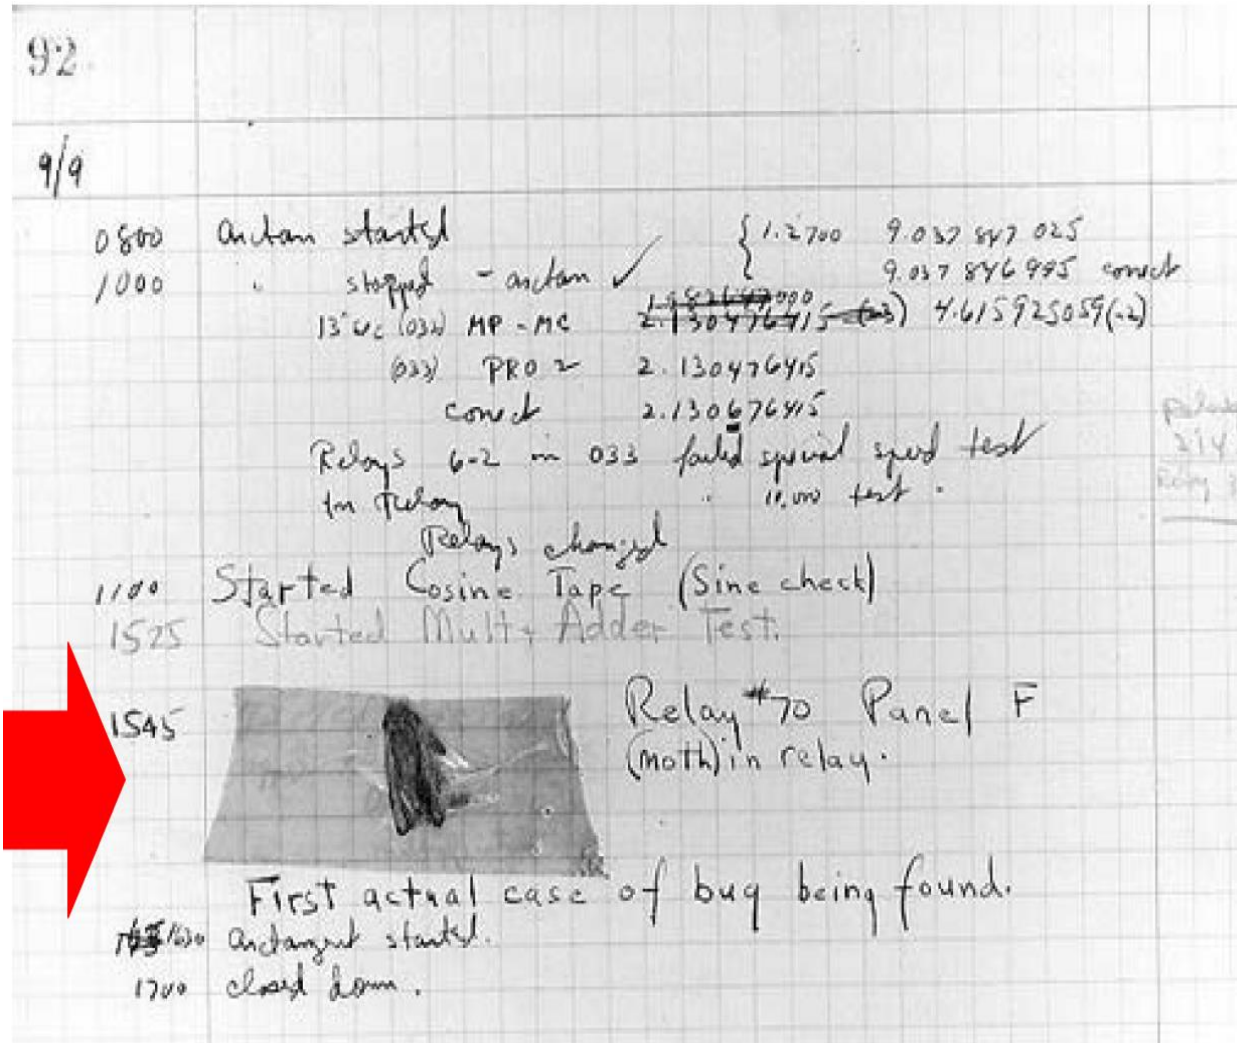 92
9/9
0800 arctan started {1.2700 9.037 847 025
1000 " stopped - arctan ✓ 9.037 846 995 correct
13" uc (032) MP - MC 2.130476415 (-3) 4.615925059(-2)
(033) PRO 2 2.130476415
correct 2.130676415
Relays 6-2 in 033 failed special speed test
in Relay " 10,000 test.
Relays changed
1100 Started Cosine Tape (Sine check)
1525 Started Mult + Adder Test.
1545 Relay #70 Panel F
(moth) in relay.
First actual case of bug being found.
1630 arctangent started.
1700 closed down.